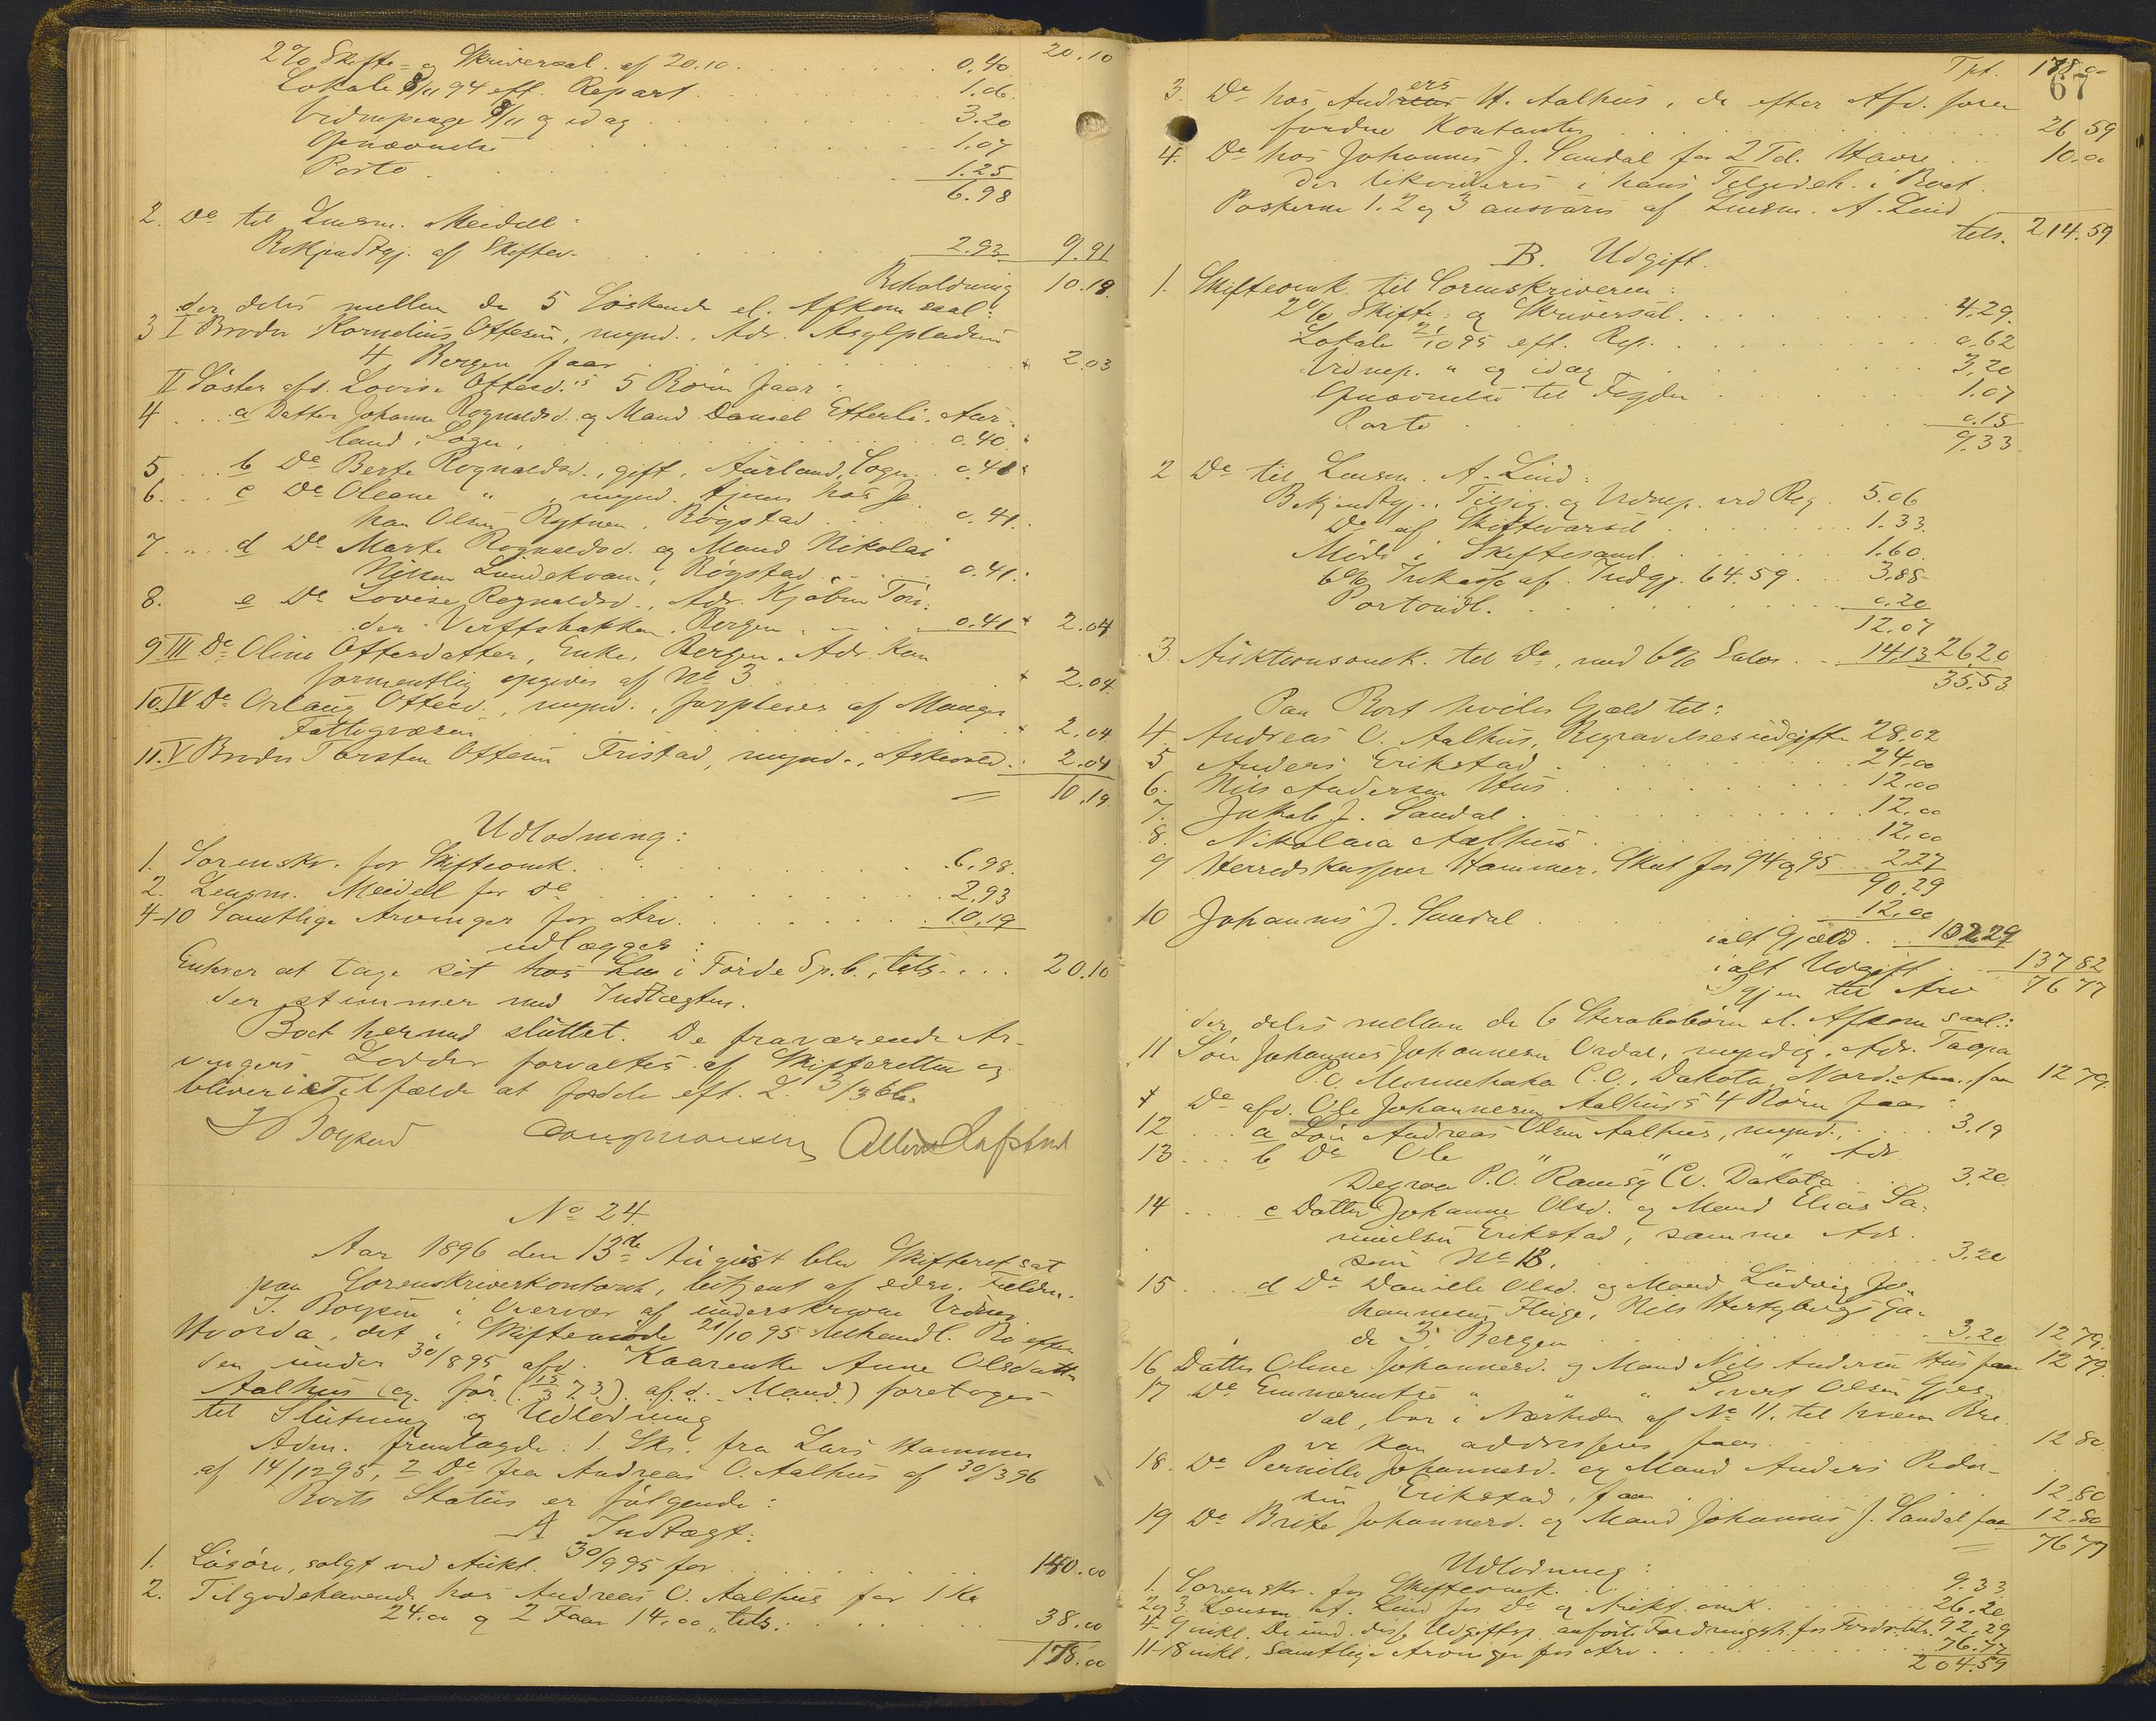 20.10
2% Skifte- og Skriversal. af 20.10 . . . 0.40
Lokale 8/11 94 eft. Repart. . . . 1.06
Vidnepenge 8/11 og idag . . . 3.20
Opnævnelse . . . 1.07
Porto . . . 1.25
6.98
2. Do til Lensm. Meidell:
Bekjendtgj. af Skiftev. . . . 2.93 9.91
Beholdning 10.19
der deles mellem de 5 Söskende el. Afkom saal:
3 I Broder Kornelius Ottesen, mynd., Adr. Asylpladsen
4 Bergen faar . . . 2.03
II Söster afd. Lovise Ottesd.'s 5 Börn faar:
4 . . a Datter Johanne Rognaldsd. og Mand Daniel Etterli, Aur-
land, Sogn, . . . 0.40
5 . . . b Do Berte Rognaldsd., gift, Aurland, Sogn . . 0.41
6. . . c Do Oleane " , mynd. tjener hos Jo
han Olsen Rytnen, Rögstad . . . 0.41
7 . . . d Do Marte Rognaldsd. og Mand Nikolai
Nilsen Lundekvam, Rögstad . . . 0.41
8. e Do Lovise Rognaldsd., Adr. Kjöbm Tön-
der Verftsbakken, Bergen . . . 0.41 2.04
9 III Do Oline Ottesdatter, Enke, Bergen. Adr. kan
formentlig opgives af No 3 . . . 2.04
10. IV Do Orlaug Ottesd., mynd., forpleies af Manger
Fattigvæsen . . . 2.04
11. V Broder Torsten Ottesen Fristad, mynd., Askevold . . 2.04
= 10.19
Udlodning:
1. Sorenskr. for Skifteomk. . . . 6.98
2. Lensm. Meidell for Do . . . 2.93
4-10 Samtlige Arvinger for Arv . . . 10.19
udlægges:
Enhver at tage sit hos Len i Förde Sp.b., tils. . . . 20.10
der stemmer med Indtægten.
Boet hermed sluttet. De fraværende Ar-
vingers Lodder forvaltes af Skifteretten og
bliver i Tilfælde at fordele eft. L. 3/3 66.
No 24.
Aar 1896 den 13de August blev Skifteret sat
paa Sorenskriverkontoret, betjent af edsv. Fuldm.
J. Boysen i Overvær af underskrevne Vidner
Hvorda, det i Skiftesamling 21/10 95 behandl. Bo efter
den under 30/8 95 afd. Kaarenke Anne Olsdatter
Aalhus (og för (15/3 73) afd. Mand) foretages
til Slutning og Udlodning
Adm. fremlagde: 1. Skr. fra Lars Hammer
af 14/12 95, 2 Do fra Andreas O. Aalhus af 30/3 96
Boets Status er fölgende:
A Indtægt:
1. Lösöre, solgt ved Aukt. 30/9 95 for . . . 140.00
2. Tilgodehavende hos Andreas O. Aalhus for 1 Ko
24.00 og 2 Faar 14.00, tils. . . . 38.00
178.00
Tpt. 178.00
67
3. Do hos Andreas ers H. Aalhus, da efter Afd. forefundne
Kontanter . . . 26.59
4. Do hos Johannes J. Sandal for 2 Td. Havre . . . 10.00
der likvideres i hans Tilgodeh. i Boet.
Posterne 1. 2 og 3 ansvares af Lensm. A. Lind
tils. 214.59
B. Udgift.
1. Skifteomk. til Sorenskriveren:
2% Skifte- og Skriversal. . . . 4.29
Lokale 21/10 95 eft. Rep. . . . 0.62
Vidnep. " og idag . . . 3.20
Opnævnelse til Fogden . . . 1.07
Porto . . . 0.15
9.33
2 Do til Lensm. A. Lind:
Bekjendtgj., Tilsig. og Vidnep. ved Reg. 5.06
Do af Skiftevarsel . . . 1.33
Möde i Skiftesaml. . . . 1.60
6% Inkasso af Indgj. 64.59 . . 3.88
Portoudl. . . . 0.20
12.07
3. Auktionsomk. til Do, med 6% Salær . . 14.13 26.20
35.53
Paa Boet hviler Gjæld til:
4 Andreas O. Aalhus, Begravelsesudgifter 28.02
5 Anders Erikstad . . . 24.00
6. Nils Andersen Hus . . . 12.00
7. Jakob J. Sandal . . . 12.00
8. Nikolaia Aalhus . . . 12.00
9 Herredskasserer Hammer, Skat for 94 og 95 . . 2.27
90.29
10 Johannes J. Sandal . . . 12.00
ialt Gjæld . . . 102.29
ialt Udgift . . . 137.82
Igjen til Arv 76.77
der deles mellem de 6 Sterobobörn el. Afkom saal.:
11 Sön Johannes Johannesen Ordal, myndig, Adr. Taopa
P.O. Minnehaha C.O., Dakota, Nord. Am., faar 12.79
Do afd. Ole Johannesen Aalhus's 4 Börn faar:
12 . . . a Sön Andreas Olsen Aalhus, mynd., . . . 3.19
13 . . . b Do Ole " " " Adr.
Degroa P.O. Ramsy Co. Dakota . . 3.20
14 . . . c Datter Johanne Olsd. og Mand Elias Sa-
muelsen Erikstad, samme Adr.
som No 13. . . . 3.20
15 . . . d Do Danielle Olsd. og Mand Ludvig Jo-
hannesen Fluge, Nils Hertzbergs Ga-
de 3, Bergen . . . 3.20 12.79
16 Datter Oline Johannesd. og Mand Nils Andersen Hus faar 12.79
17 Do Emmerentse " " " Sivert Olsen Gjes-
dal, bor i Nærheden af No 11, til hvem Bre-
ve kan addresseres faar . . . 12.80
18. Do Pernille Johannesd. og Mand Anders Peder-
sen Erikstad, faar . . . 12.80
19 Do Brite Johannesd. og Mand Johannes J. Sandal faar 12.80
= 76.77
Udlodning:
1. Sorenskr. for Skifteomk. . . . 9.33
2 og 3. Lensm. A. Lind for Do og Aukt. omk. . . . 26.20
4-9 inkl. De und. disse Udgiftsp. anförte Fordringsh. for Fordr. tils. 92.29
11-18 inkl. Samtlige Arvinger for Arv . . . 76.77
204.59